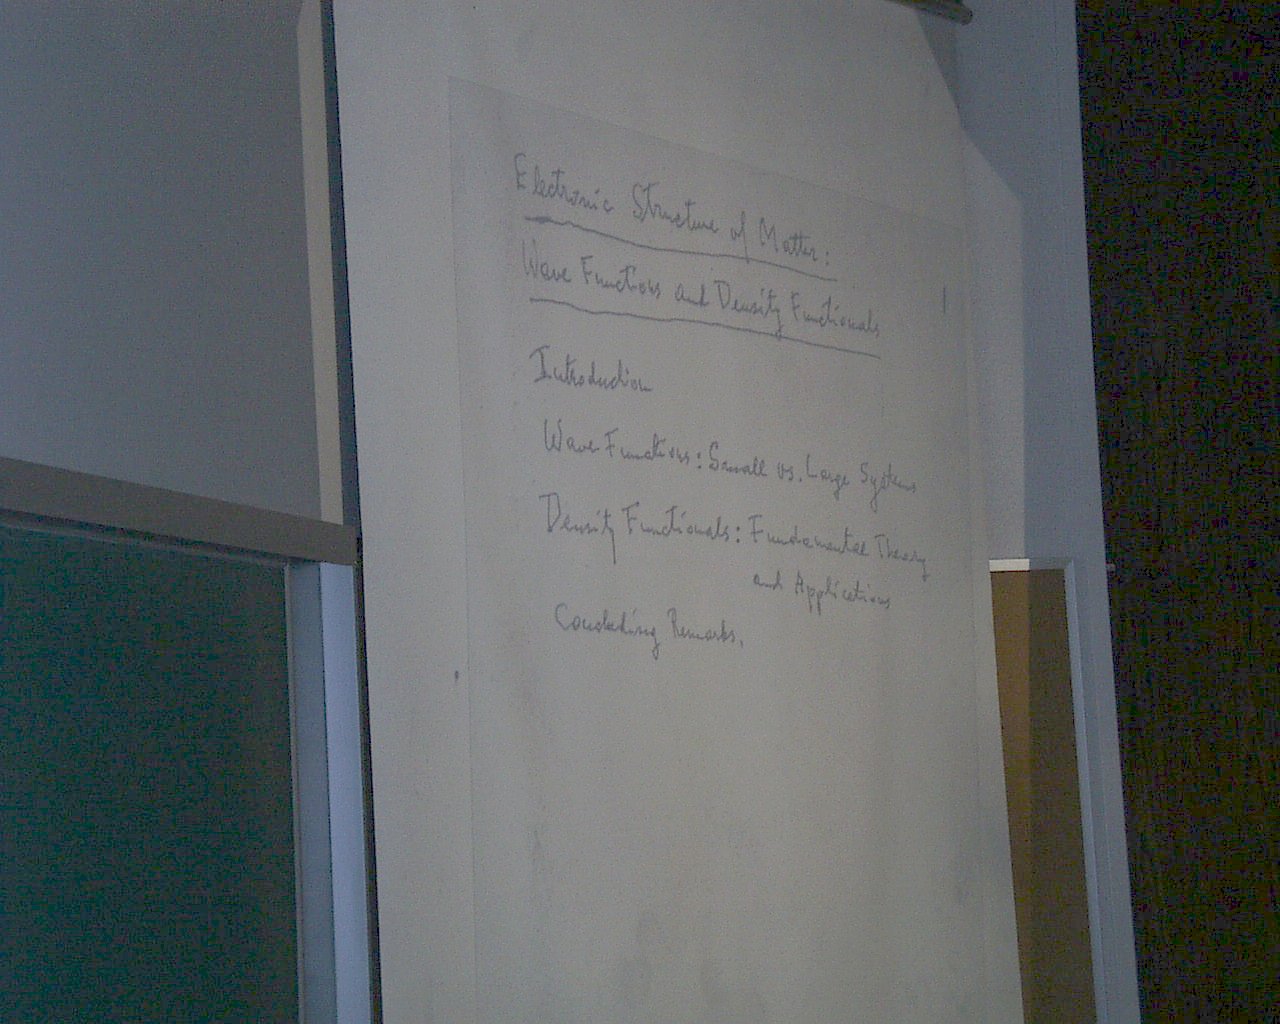 Electronic Structure of Matter:
Wave Functions and Density Functionals
1
Introduction
Wave Functions: Small vs. Large Systems
Density Functionals: Fundamental Theory
and Applications
Concluding Remarks.